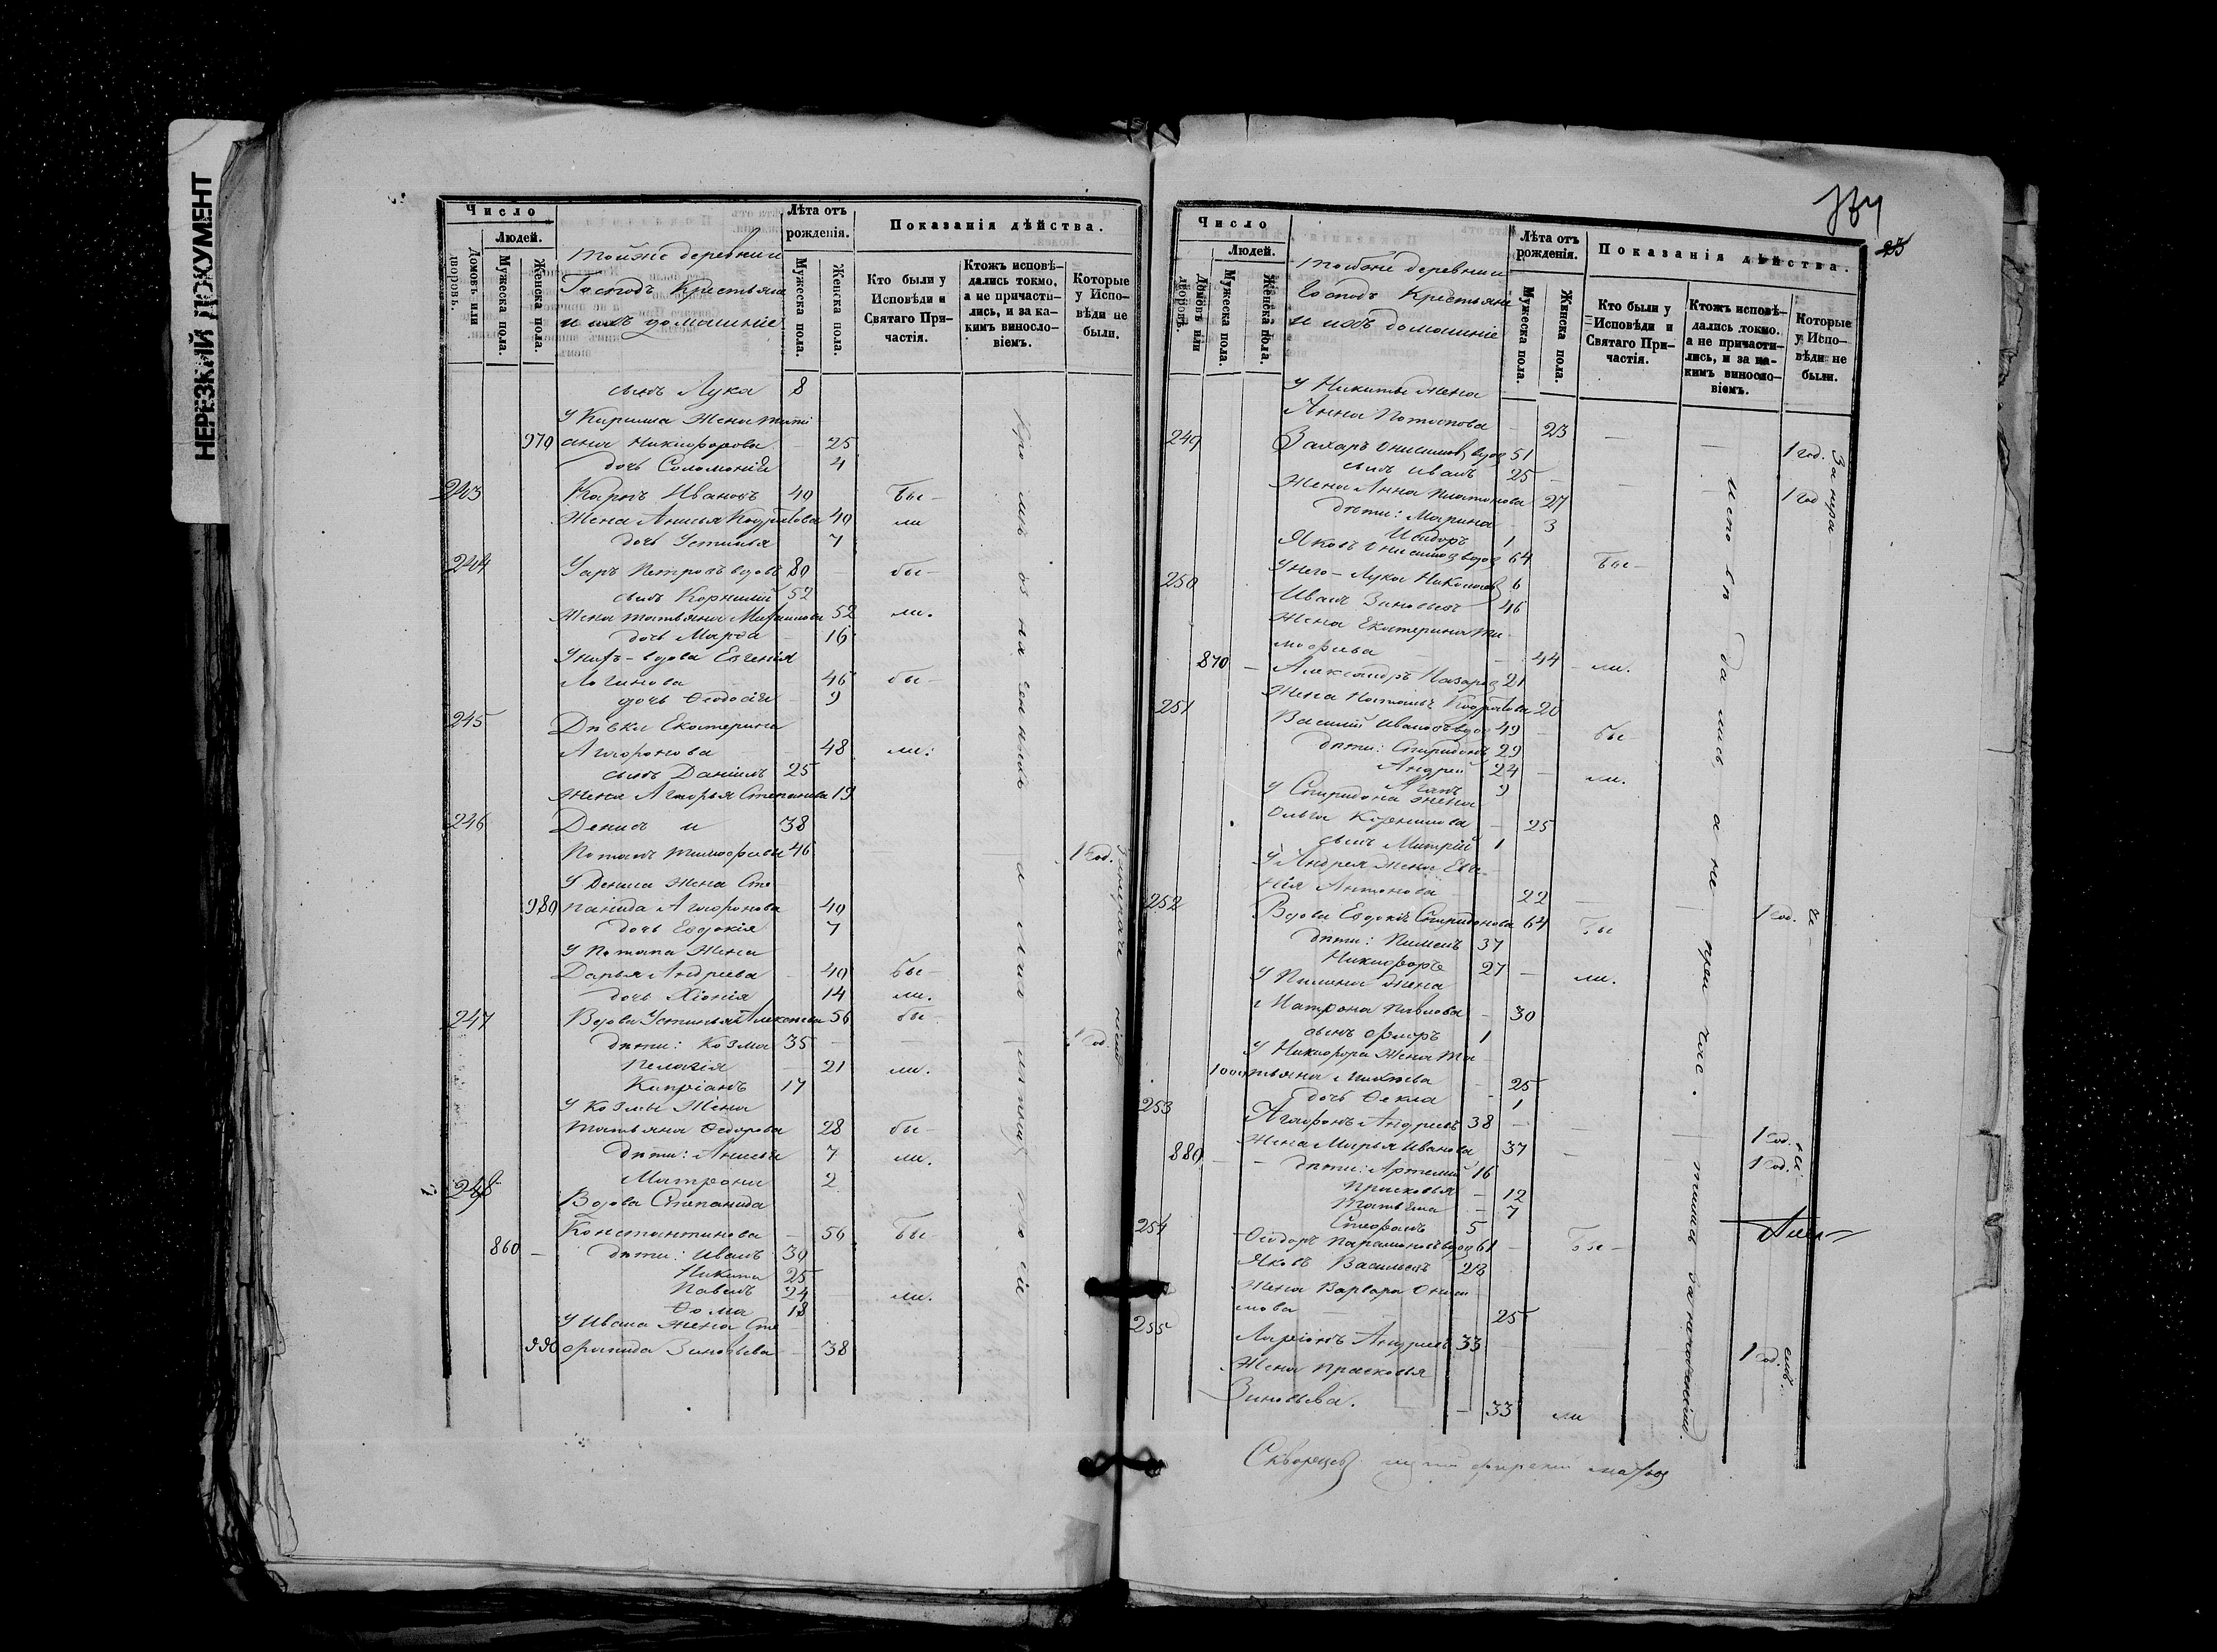 НЕРЕЗКИЙ ДОКУМЕНТ
Число
Людей.
Домовъ или дворовъ.
Мужеска пола.
Женска пола.
Тойже деревни
Господъ Крестьяне
и ихъ домашніе
Лѣта отъ рожденія.
Мужеска пола.
Женска пола.
Показанія дѣйства.
Кто были у Исповѣди и Святаго Причастія.
Ктожъ исповѣдались токмо, а не причастились, и за какимъ винословіемъ.
Которые у Исповѣди не были.
сынъ Лука 8
У Кирилла Жена Тати
979 ана Никифорова - 25
дочь Соломонія 4
243 Карпъ Ивановъ 40 - бы-
Жена Анисья Кодратова 40 ли
дочь Устинья 7
244 Уаръ Петровъ вдовъ 80 - бы-
сынъ Корнилий 52
Жена Татьяна Михаилова 52 ли.
дочь Марфа - 16
У нихъ - вдова Евгенія
Логинова 46 бы-
дочь Ѳеодосія - 9
245 Дѣвки Екатерина
Агафонова - 48 ли.
сынъ Даніилъ 25
Жена Агафья Степанова 19
246 Денисъ и 38
Потапъ Тимофеевы 46 1 год.
У Дениса Жена Сте-
989 панида Агафонова 40
дочь Евдокія 7
У Потапа Жена
Дарья Андреева - 40 бы-
дочь Хіонія 14 ли.
247 Вдова Устинья Алексеева 56 бы-
дѣти: Козма 35 - 1 год
Пелагія - 21 ли.
Кипріанъ 17
У Козмы Жена
Татьяна Ѳедорова 28 бы-
дѣти: Анисья 7 ли.
Матрона 2
248 Вдова Степанида
Константинова - 56 бы
860 - дѣти: Иванъ 30
Никита 25
Павелъ 24 - ли.
Ѳома 18
У Ивана Жена Сте-
990 фанида Зиновьева - 38
334
25
Число
Людей.
Домовъ или дворовъ.
Мужеска пола.
Женска пола.
Тойже деревни
Господъ Крестьяне
и ихъ домашніе
Лѣта отъ рожденія.
Мужеска пола.
Женска пола.
Показанія дѣйства.
Кто были у Исповѣди и Святаго Причастія.
Ктожъ исповѣдались токмо, а не причастились, и за какимъ винословіемъ.
Которые у Исповѣди не были.
У Никиты Жена
Анна Потапова - 23
249 Захаръ Онисимов вдов 51 1 год.
сынъ Иванъ 25 -
Жена Анна Платонова 27 1 год
дѣти: Марина - 3
Исидоръ 1
Яковъ Онисимов вдов 64 бы-
У него - Лука Николаев 6
250 Иванъ Зиновьевъ 46
Жена Екатерина Ти-
мофеева - 44 - ли.
870 - Александръ Назаров 21
Жена Наталья Кодратова 20
251 Василій Ивановъ вдов 49 - бы
дѣти: Спиридонъ 29
Андрей 24 - ли.
Агапъ 9
У Спиридона жена
Ольга Корнилова - 25
сынъ Митрій 1
У Андрея жена Евге-
нія Антонова - 22
252 Вдова Евдокія Спиридонова 64 бы 1 год.
дѣти: Пименъ 37
Никифоръ 27 - ли.
У Пимена жена
Матрона Павлова - 30
сынъ Флоръ 1
У Никифора Жена Та-
1000 тьяна Михеева - 25
дочь Ѳекла - 1
253 Агафонъ Андреевъ 38 - 1 год.
Жена Марья Иванова 37 1 год.
880 - дѣти: Артемій 16
Прасковья - 12
Татьяна - 7
Стефанъ 5
254 Ѳеодоръ Парамоновъ вдов 61 - бы-
Яковъ Васильевъ 28
Жена Варвара Ониси-
мова 25
255 Ларіонъ Андреевъ 33 1 год.
Жена Прасковья
Зиновьева. - 33 ли